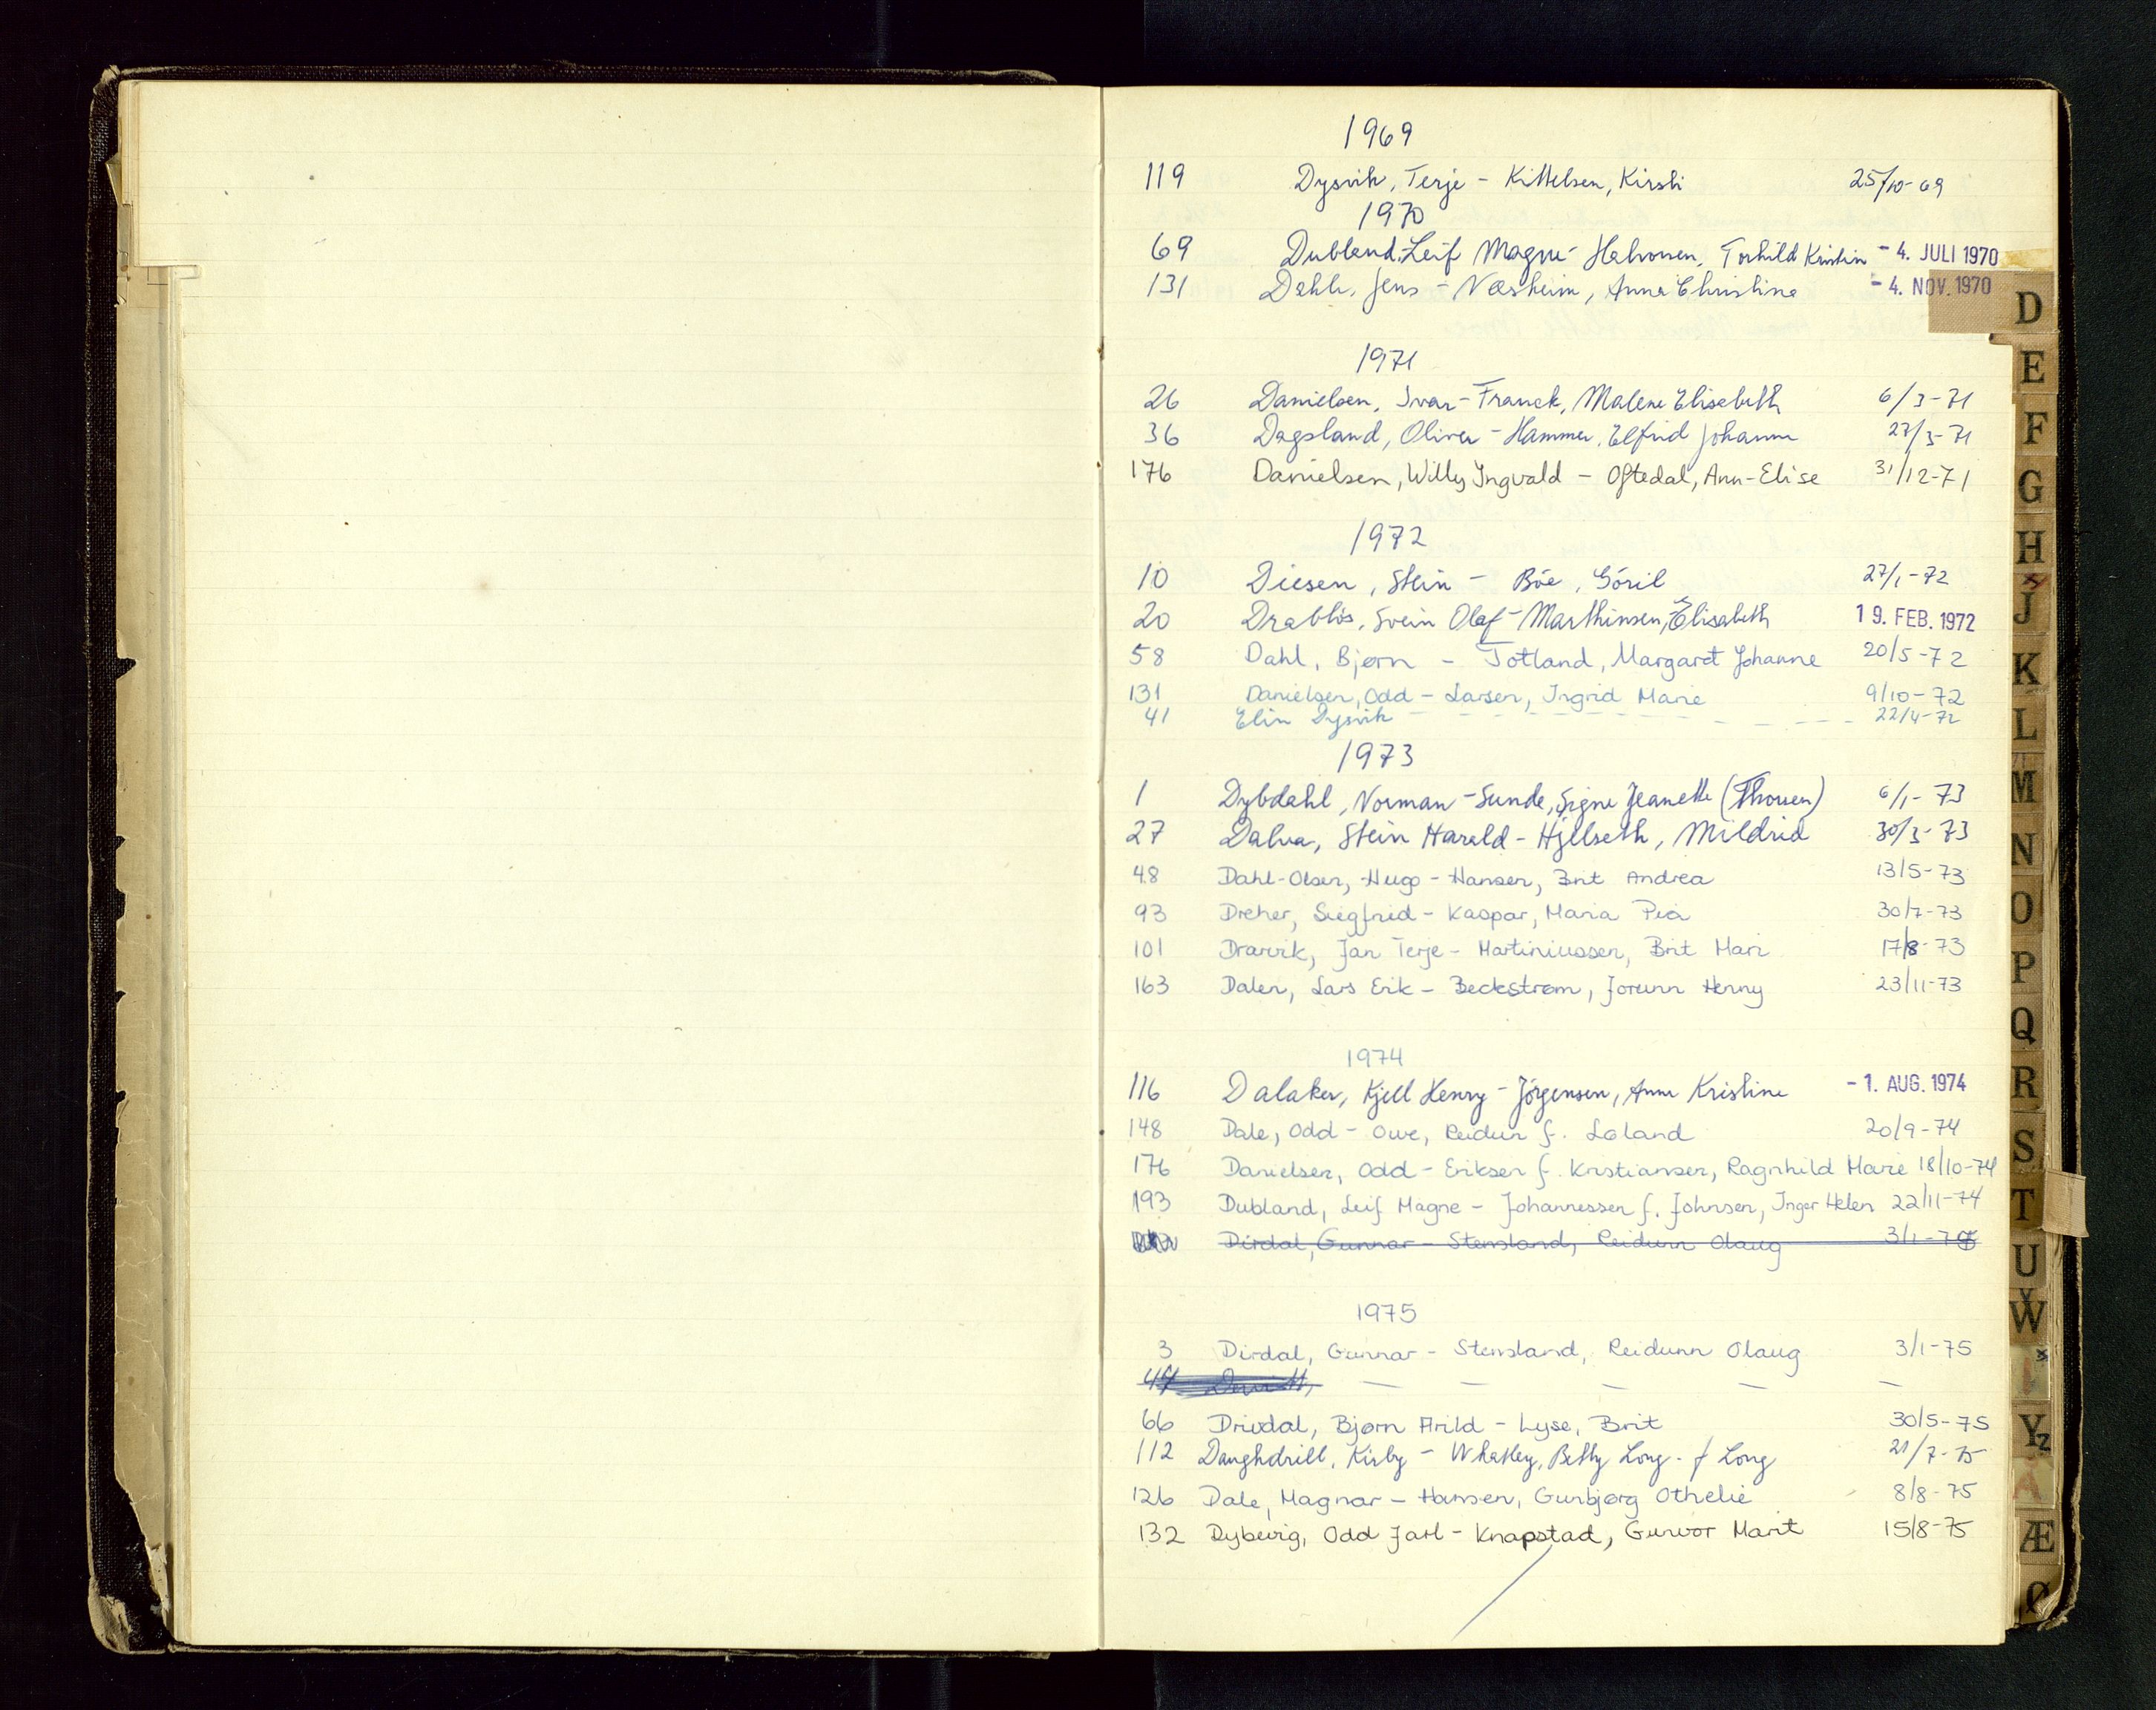 1969
119 Dysvik, Terje - Kittelsen, Kirsti 25/10-69
1970
69 Dubland, Leif Magne - Halvorsen, Torhild Kristin - 4. JULI 1970
131 Dahle, Jens - Næsheim, Anna Christine - 4. NOV. 1970
1971
26 Danielsen, Ivar - Franck, Malene Elisebeth 6/3-71
36 Dagsland, Oliver - Hammer, Elfrid Johanne 27/3-71
176 Danielsen, Willy Ingvald - Oftedal, Ann-Elise 31/12-71
1972
10 Diesen, Stein - Böe, Göril 27/1-72
20 Drabløs, Svein Olaf - Marthinsen, Elisabeth 19. FEB. 1972
58 Dahl, Bjørn - Totland, Margaret Johanne 20/5-72
131 Danielsen, Odd - Larsen, Ingrid Marie 9/10-72
41 Elin Dysvik - - - - - - - - 22/4-72
1973
1 Dybdahl, Norman - Sunde, Signe Jeanette (Thorsen) 6/1-73
27 Dalva, Stein Harald - Hjellseth, Mildrid 30/3-73
48 Dahl-Olsen, Hugo - Hansen, Brit Andrea 13/5-73
93 Dreher, Siegfried - Kaspar, Maria Pia 30/7-73
101 Drarvik, Jan Terje - Martiniussen, Brit Mari 17/8-73
163 Dalen, Lars Erik - Beckstrøm, Jorunn Henny 23/11-73
1974
116 Dalaker, Kjell Henry - Jörgensen, Anne Kristine - 1. AUG. 1974
148 Dale, Odd - Owe, Reidun f. Løland 20/9-74
176 Danielsen, Odd - Eriksen f. Kristiansen, Ragnhild Marie 18/10-74
193 Dubland, Leif Magne - Johannessen f. Johnsen, Inger Helen 22/11-74
Dirdal, Gunnar - Stensland, Reidunn Olaug 3/1-75
1975
3 Dirdal, Gunnar - Stensland, Reidunn Olaug 3/1-75
66 Drivdal, Bjørn Arild - Lyse, Brit 30/5-75
112 Daughdrill, Kirby - Whatley, Betty Long - f Long 21/7-75
126 Dale, Magnar - Hansen, Gunbjørg Othelie 8/8-75
132 Dybwig, Odd Jarl - Knapstad, Gunvor Marit 15/8-75
D
E
F
G
H
J
K
L
M
N
O
P
Q
R
S
T
U
V
W
Y
Z
Å
Æ
Ø